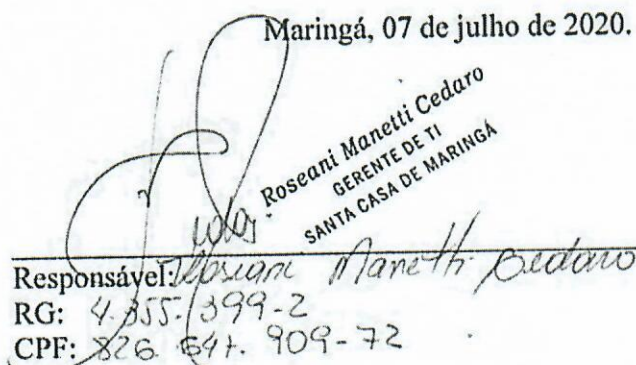 Maringá, 07 de julho de 2020.
Roseani Manetti Cedaro
GERENTE DE TI
SANTA CASA DE MARINGÁ
Responsável: Roseani Manetti Cedaro
RG: 4.355.399-2
CPF: 826. 909-72